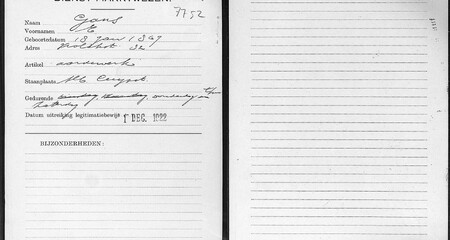 DIENST MARKTWEZEN.
7752
Naam Gans
Voornamen E
Geboortedatum 13 Jan 1869
Adres 32
Artikel aardewerk
Standplaats Alb. Cuypst.
Gedurende maandag, dinsdag, donderdag en
zaterdag
Datum uitreiking legitimatiebewijs 1 DEC. 1922
BIJZONDERHEDEN: